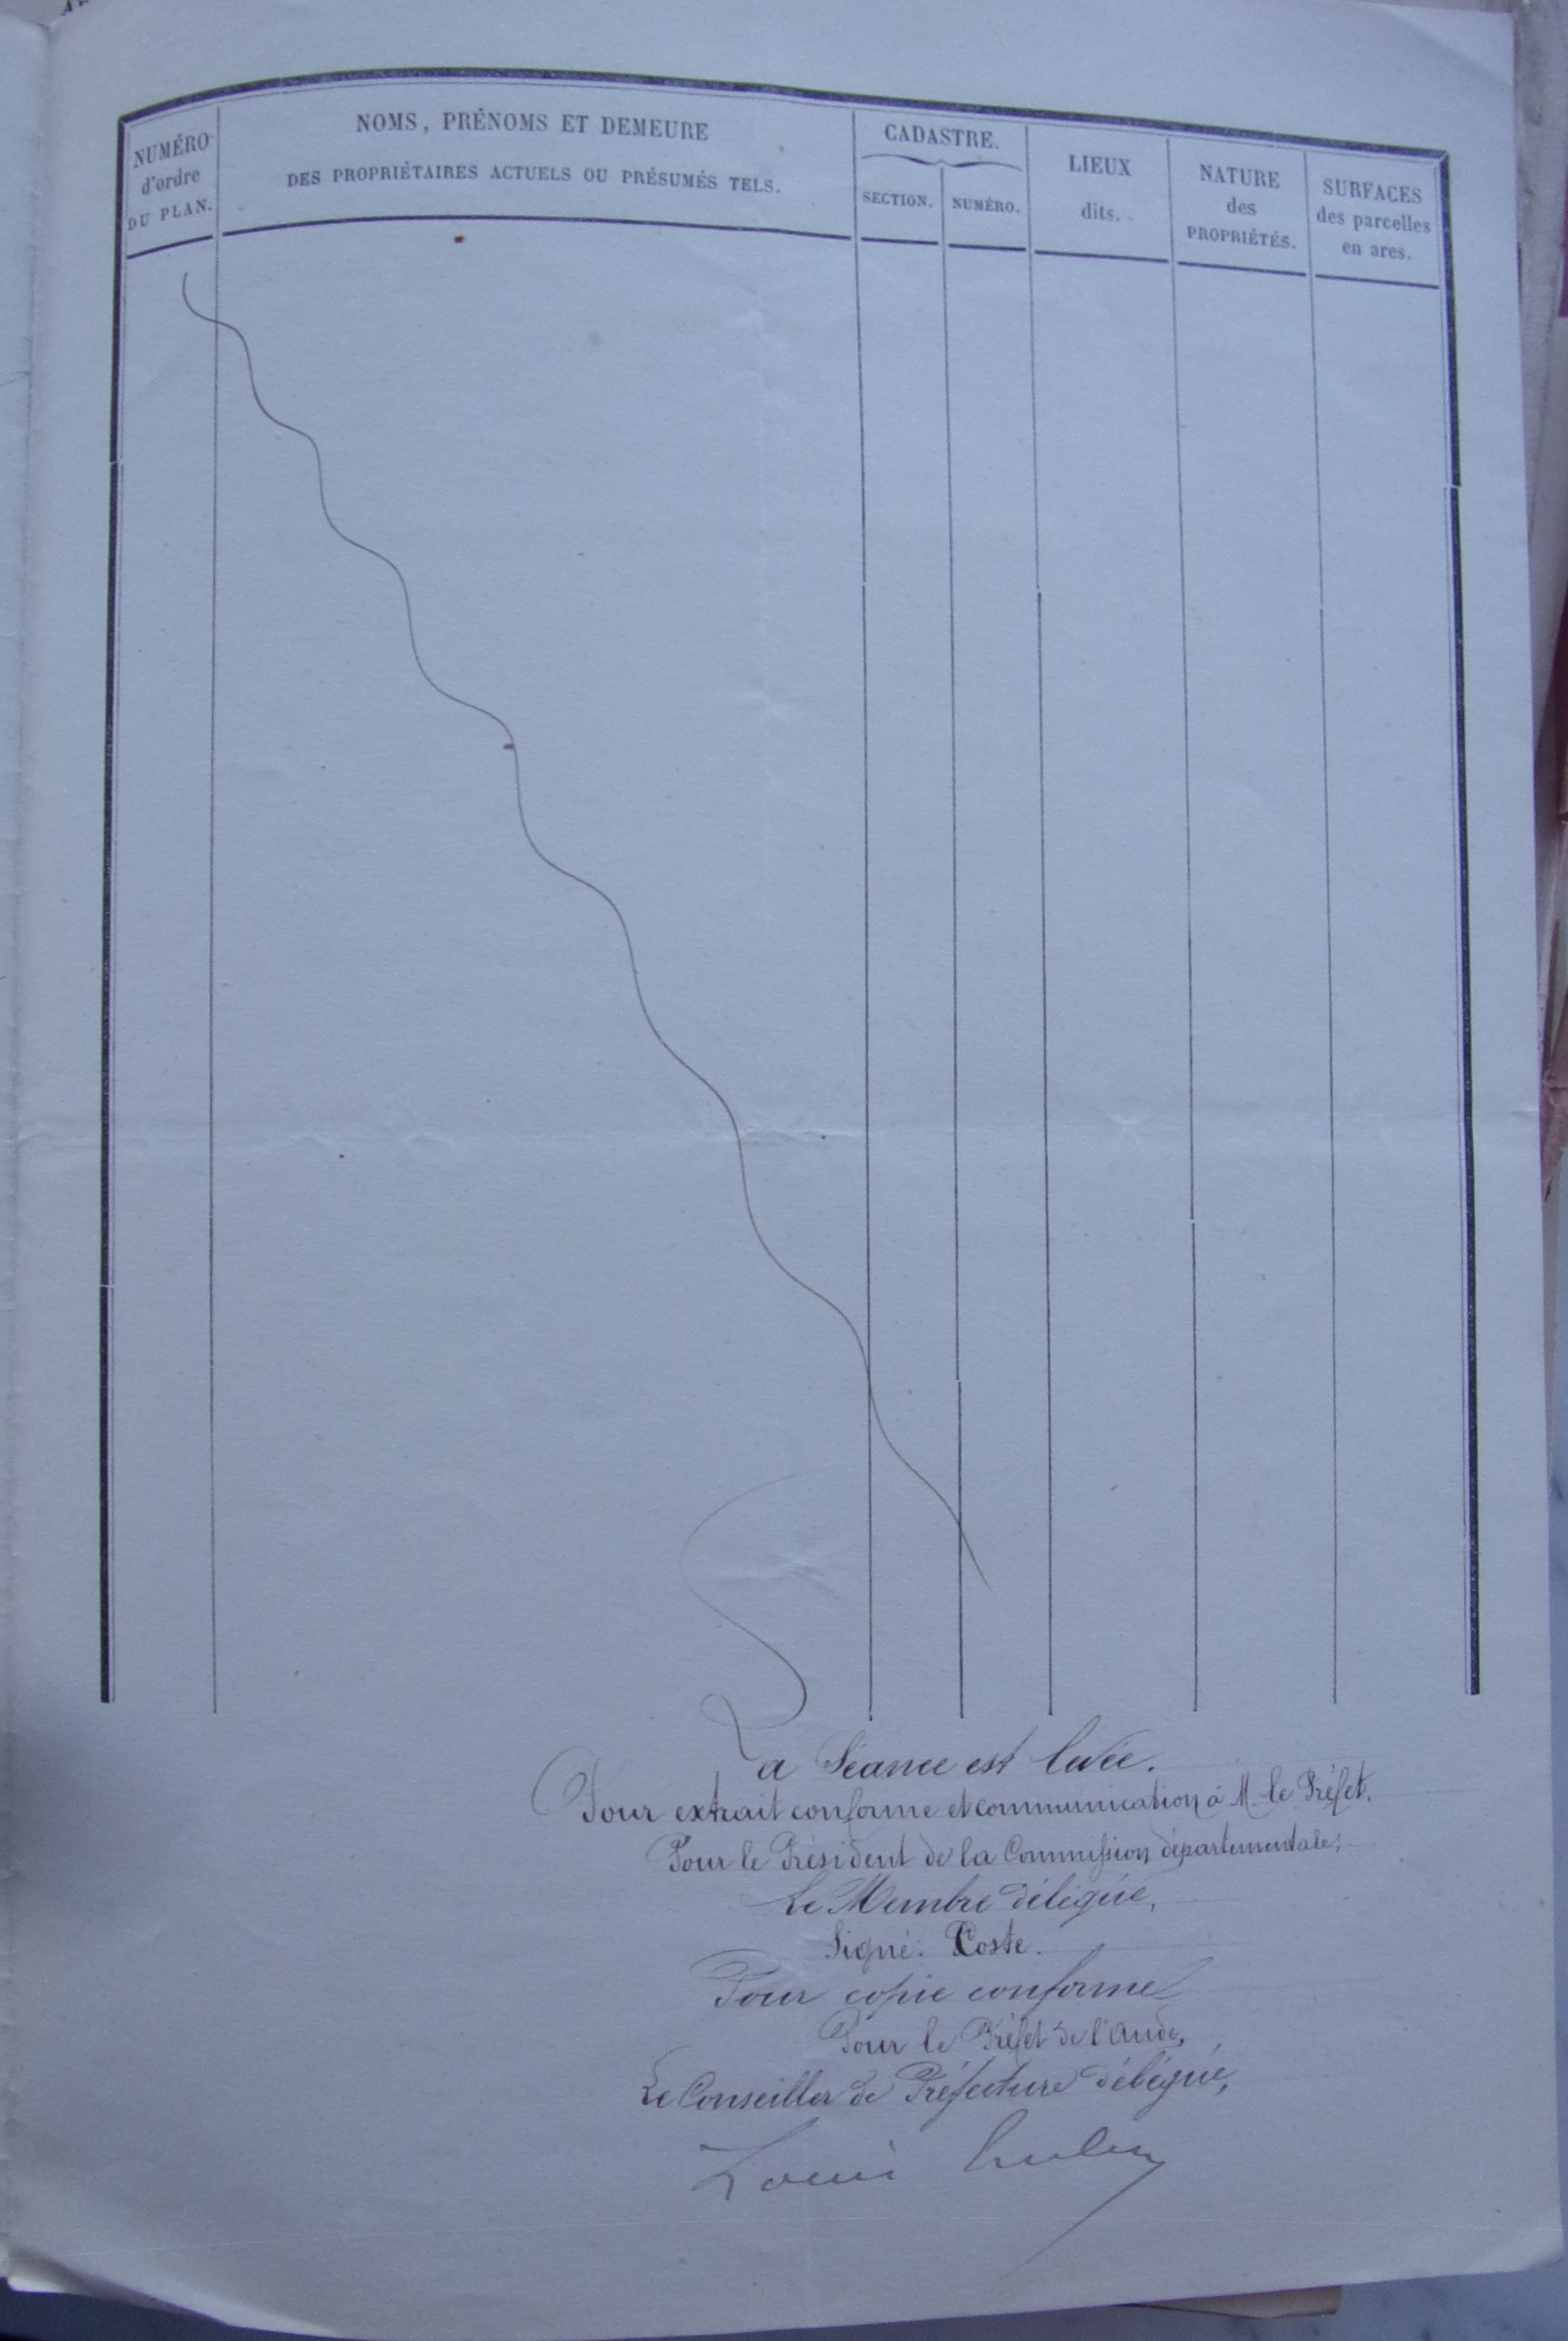 NUMÉRO
d'ordre
DU PLAN.
NOMS, PRÉNOMS ET DEMEURE
DES PROPRIÉTAIRES ACTUELS OU PRÉSUMÉS TELS.
CADASTRE.
SECTION.
NUMÉRO.
LIEUX
dits.
NATURE
des
PROPRIÉTÉS.
SURFACES
des parcelles
en ares.
La Séance est levée.
Pour extrait conforme et communication à M. le Préfet.
Pour le Président de la Commission départementale,
Le Membre délégué,
Signé: Coste.
Pour copie conforme
Pour le Préfet de l'Aude,
Le Conseiller de Préfecture délégué,
Louis